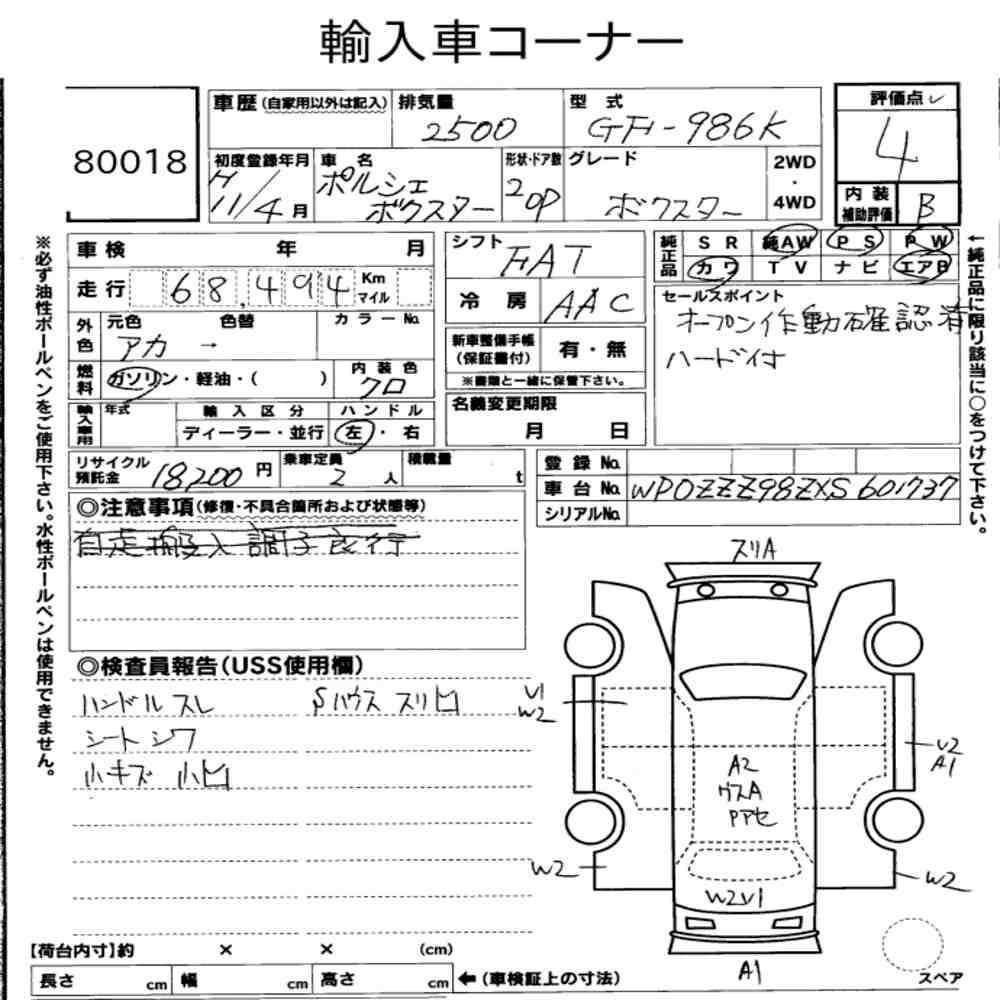 輸入車コーナー
80018
車歴(自家用以外は記入) 排気量 型式 評価点
2500 GF-986K 4
初度登録年月 車名 形状・ドア数 グレード 2WD・4WD 内装補助評価
H11/4月 ポルシェ ボクスター 2 OP ボクスター B
車検 年 月 シフト FAT 純正品 SR 純AW PS PW
走行 68,494 Km マイル 冷房 AAC カワ TV ナビ エアB
セールスポイント
オープン作動確認済
ハード付
外色 元色 色替 カラーNo. 新車整備手帳(保証書付) 有・無
アカ →
※書類と一緒に保管下さい。
燃料 ガソリン・軽油・( ) 内装色 クロ
名義変更期限
月 日
輸入車用 年式 輸入区分 ハンドル
ディーラー・並行 左・右
リサイクル預託金 18,200円 乗車定員 2人 積載量 t
登録No.
車台No. WP0ZZZ98ZXS601737
シリアルNo.
◎注意事項(修復・不具合箇所および状態等)
自走搬入 調子良行
◎検査員報告(USS使用欄)
ハンドル スレ
シート シワ
小キズ 小凹
スリA
U1
W2
U2
A1
A2
ウスA
W2
W2U1
W2
A1
スペア
【荷台内寸】約 × × (cm)
長さ cm 幅 cm 高さ cm ←(車検証上の寸法)
※必ず油性ボールペンをご使用下さい。水性ボールペンは使用できません。
←純正品に限り該当に○をつけて下さい。